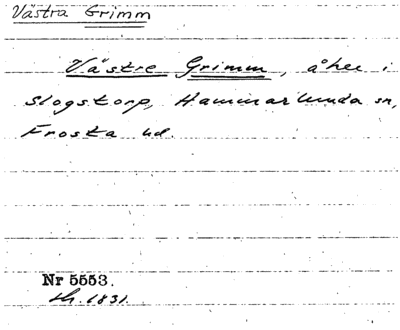 Västra Grimm
Västre Grimm, åker i
Slogstorp, Hammarlunda sn,
Frosta hd.
Nr 5553.
1831.